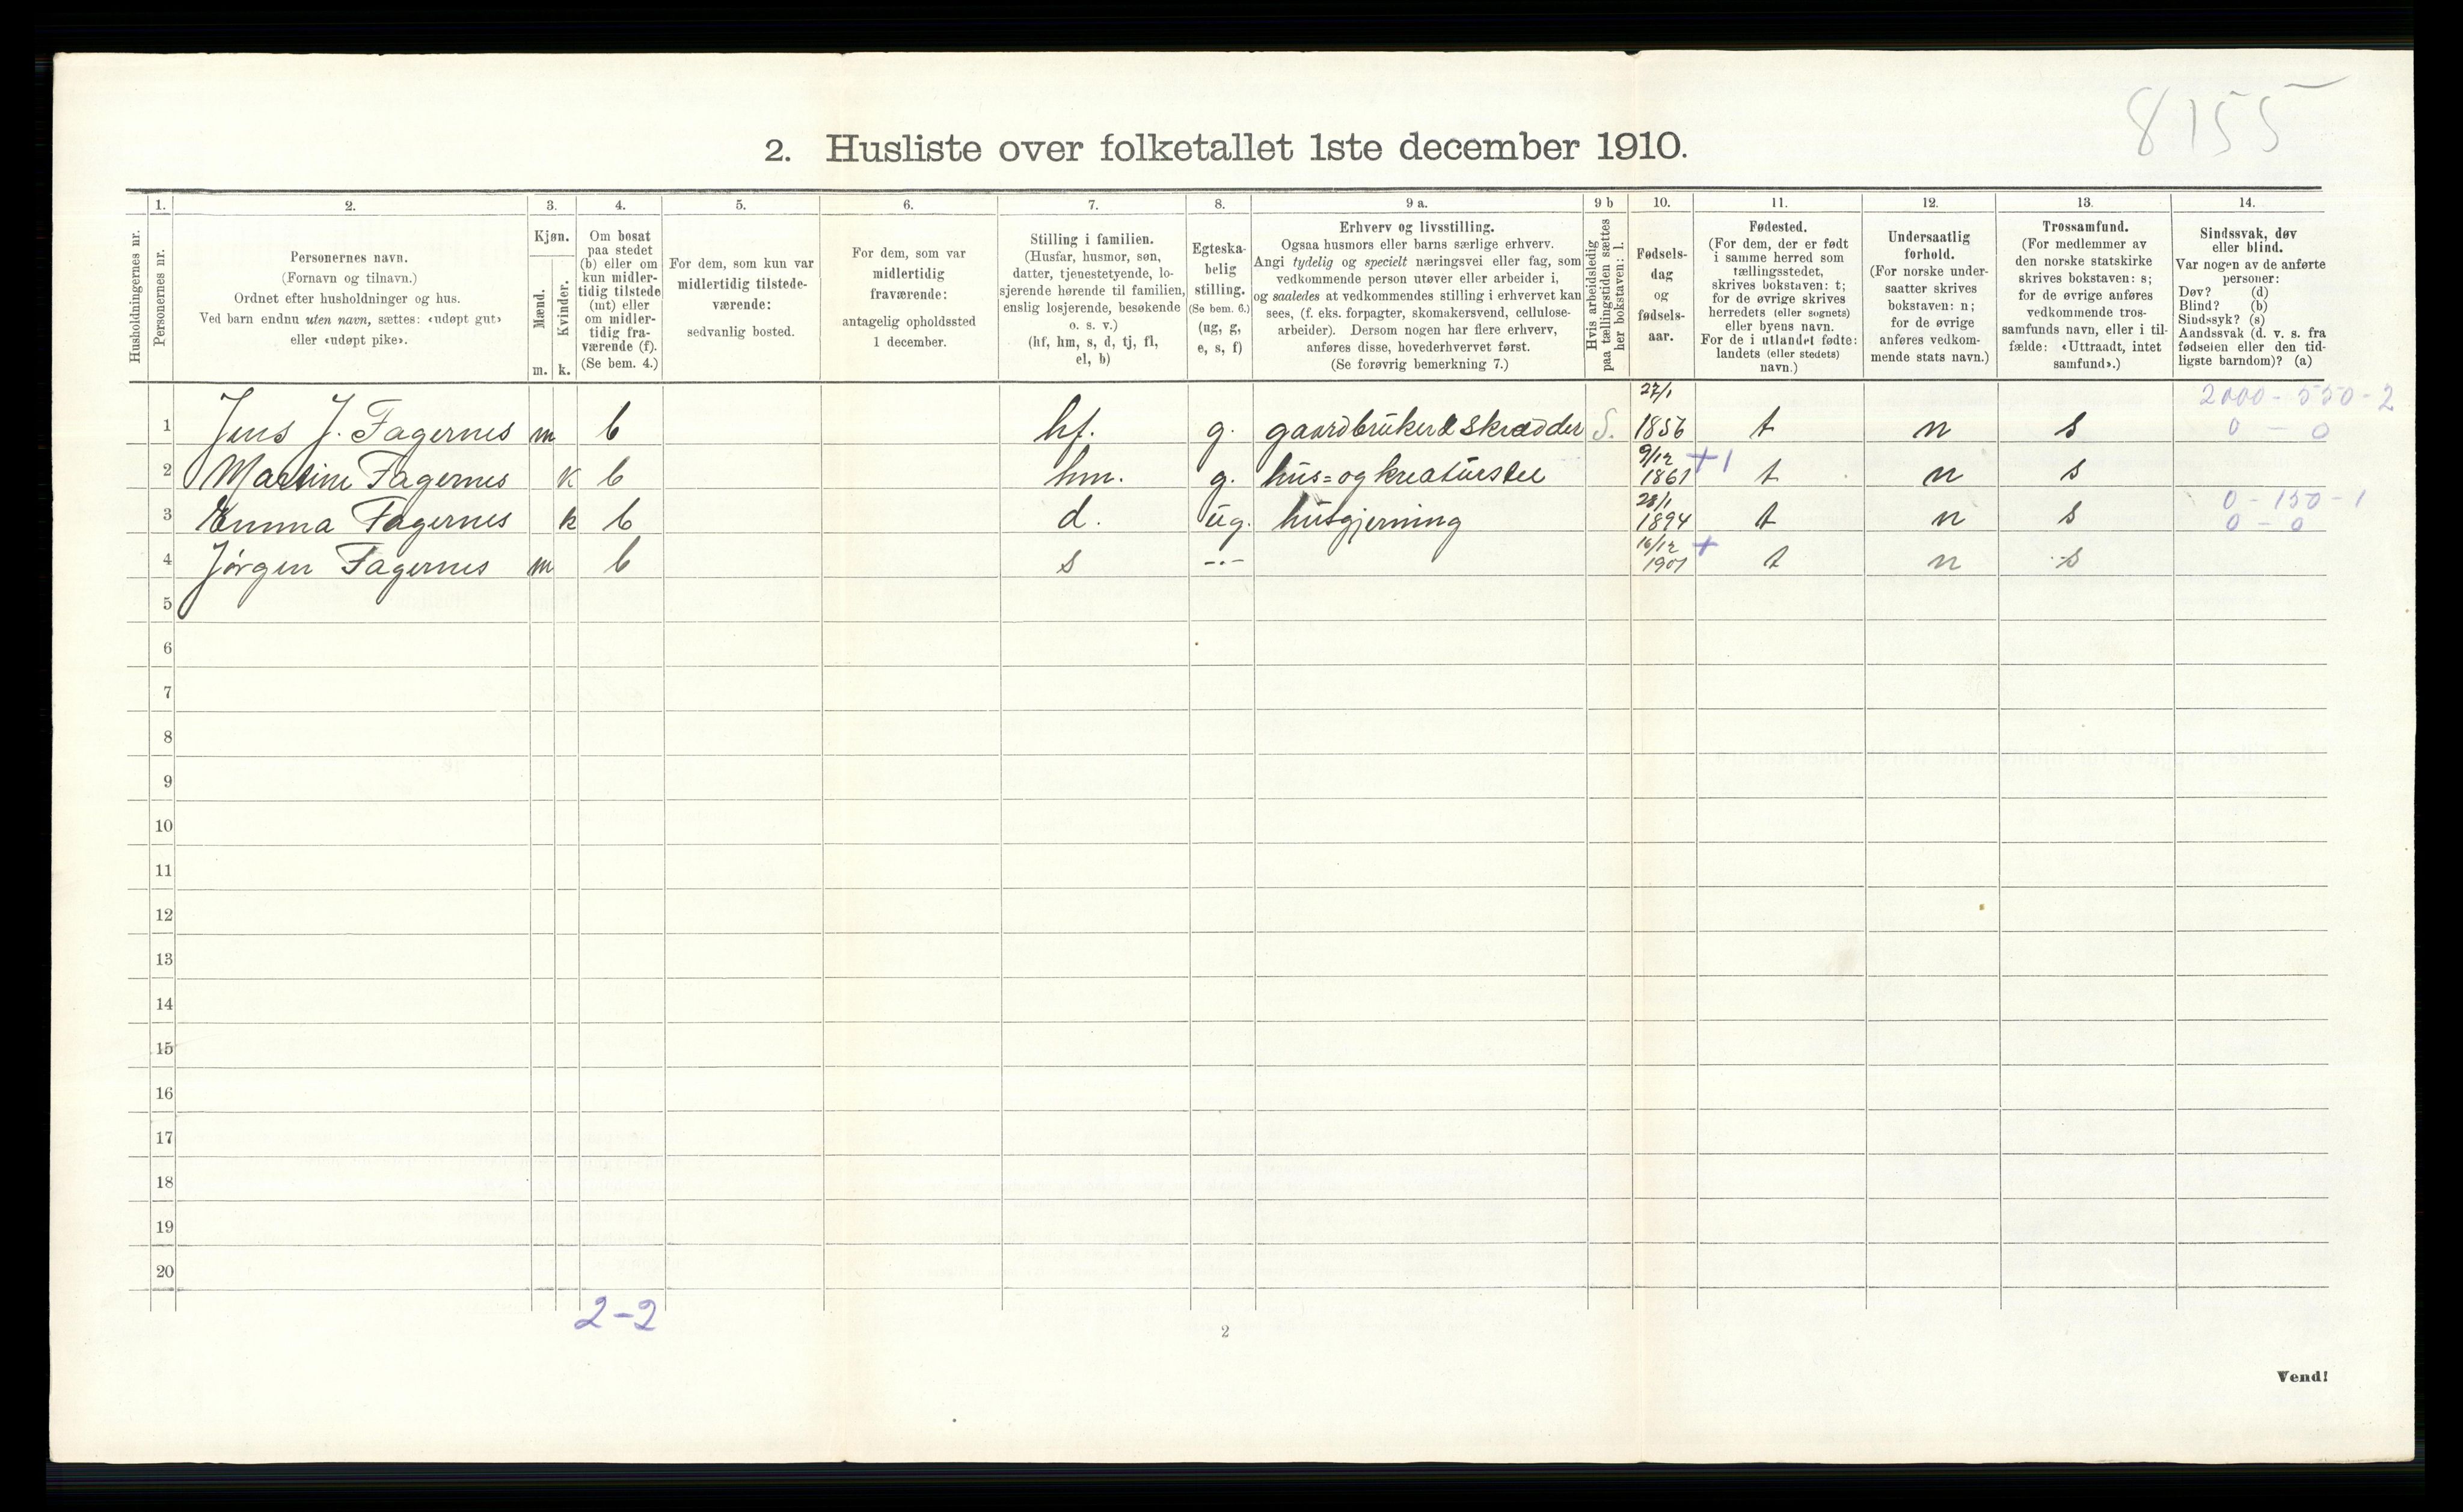 8155
2. Husliste over folketallet 1ste december 1910.
Husholdningernes nr.
1.
Personernes nr.
2.
Personernes navn.
(Fornavn og tilnavn.)
Ordnet efter husholdninger og hus.
Ved barn endnu uten navn, sættes: «udøpt gut»
eller «udøpt pike».
3.
Kjøn.
Mænd.
Kvinder.
m. k.
4.
Om bosat
paa stedet
(b) eller om
kun midler-
tidig tilstede
(mt) eller
om midler-
tidig fra-
værende (f).
(Se bem. 4.)
5.
For dem, som kun var
midlertidig tilstede-
værende:
sedvanlig bosted.
6.
For dem, som var
midlertidig
fraværende:
antagelig opholdssted
1 december.
7.
Stilling i familien.
(Husfar, husmor, søn,
datter, tjenestetyende, lo-
sjerende hørende til familien,
enslig losjerende, besøkende
o. s. v.)
(hf, hm, s, d, tj, fl,
el, b)
8.
Egteska-
belig
stilling.
(Se bem. 6.)
(ug, g,
e, s, f)
9 a.
Erhverv og livsstilling.
Ogsaa husmors eller barns særlige erhverv.
Angi tydelig og specielt næringsvei eller fag, som
vedkommende person utøver eller arbeider i,
og saaledes at vedkommendes stilling i erhvervet kan
sees, (f. eks. forpagter, skomakersvend, cellulose-
arbeider). Dersom nogen har flere erhverv,
anføres disse, hovederhvervet først.
(Se forøvrig bemerkning 7.)
9 b
Hvis arbeidsledig
paa tællingstiden sættes
her bokstaven: l.
10.
Fødsels-
dag
og
fødsels-
aar.
11.
Fødested.
(For dem, der er født
i samme herred som
tællingsstedet,
skrives bokstaven: t;
for de øvrige skrives
herredets (eller sognets)
eller byens navn.
For de i utlandet fødte:
landets (eller stedets)
navn.)
12.
Undersaatlig
forhold.
(For norske under-
saatter skrives
bokstaven: n;
for de øvrige
anføres vedkom-
mende stats navn.)
13.
Trossamfund.
(For medlemmer av
den norske statskirke
skrives bokstaven: s;
for de øvrige anføres
vedkommende tros-
samfunds navn, eller i til-
fælde: «Uttraadt, intet
samfund».)
14.
Sindssvak, døv
eller blind.
Var nogen av de anførte
personer:
Døv? (d)
Blind? (b)
Sindssyk? (s)
Aandssvak (d. v. s. fra
fødselen eller den tid-
ligste barndom)? (a)
27/1 2000-550-2
1 Jens J. Fagernes m b hf. g. gaardbruker & skrædder S. 1856 t n s 0 - 0
9/12 +1
2 Martine Fagernes k b hm. g. hus= og kreaturstel 1861 t n s
28/1 0-150-1
3 Emma Fagernes k b d. ug. husgjerning 1894 t n s 0-0
16/12 +
4 Jørgen Fagernes m b s -·- 1901 t n s
5
6
7
8
9
10
11
12
13
14
15
16
17
18
19
20
2-2
2
Vend!